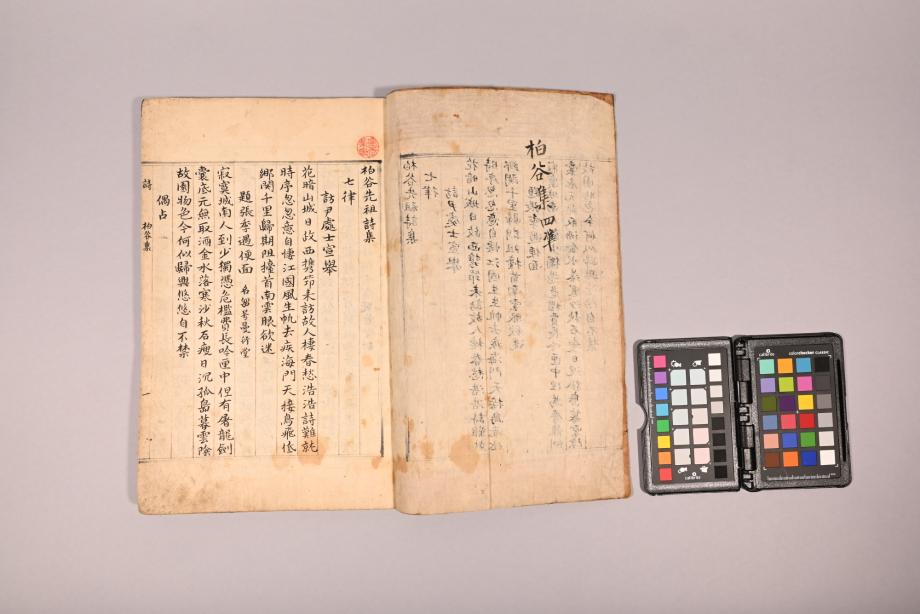 柏谷集四單
柏谷先祖詩集
七律
訪尹處士宣擧
花暗山城日故西携笻来訪故人棲春愁浩浩詩難就
時序忽忽意自悽江國風生帆去疾海門天接鳥飛低
鄉關千里歸期阻搔首南雲眼欲迷
題張季遇便面
寂寞城南人到少獨憑危檻費長吟匣中但有屠龍劍
囊底元無取酒金水落寒沙秋石瘦日沉孤島暮雲陰
故園物色今何似歸興悠悠自不禁
偶占
詩
柏谷集
一
calibrite
colorchecker CLASSIC
calibrite